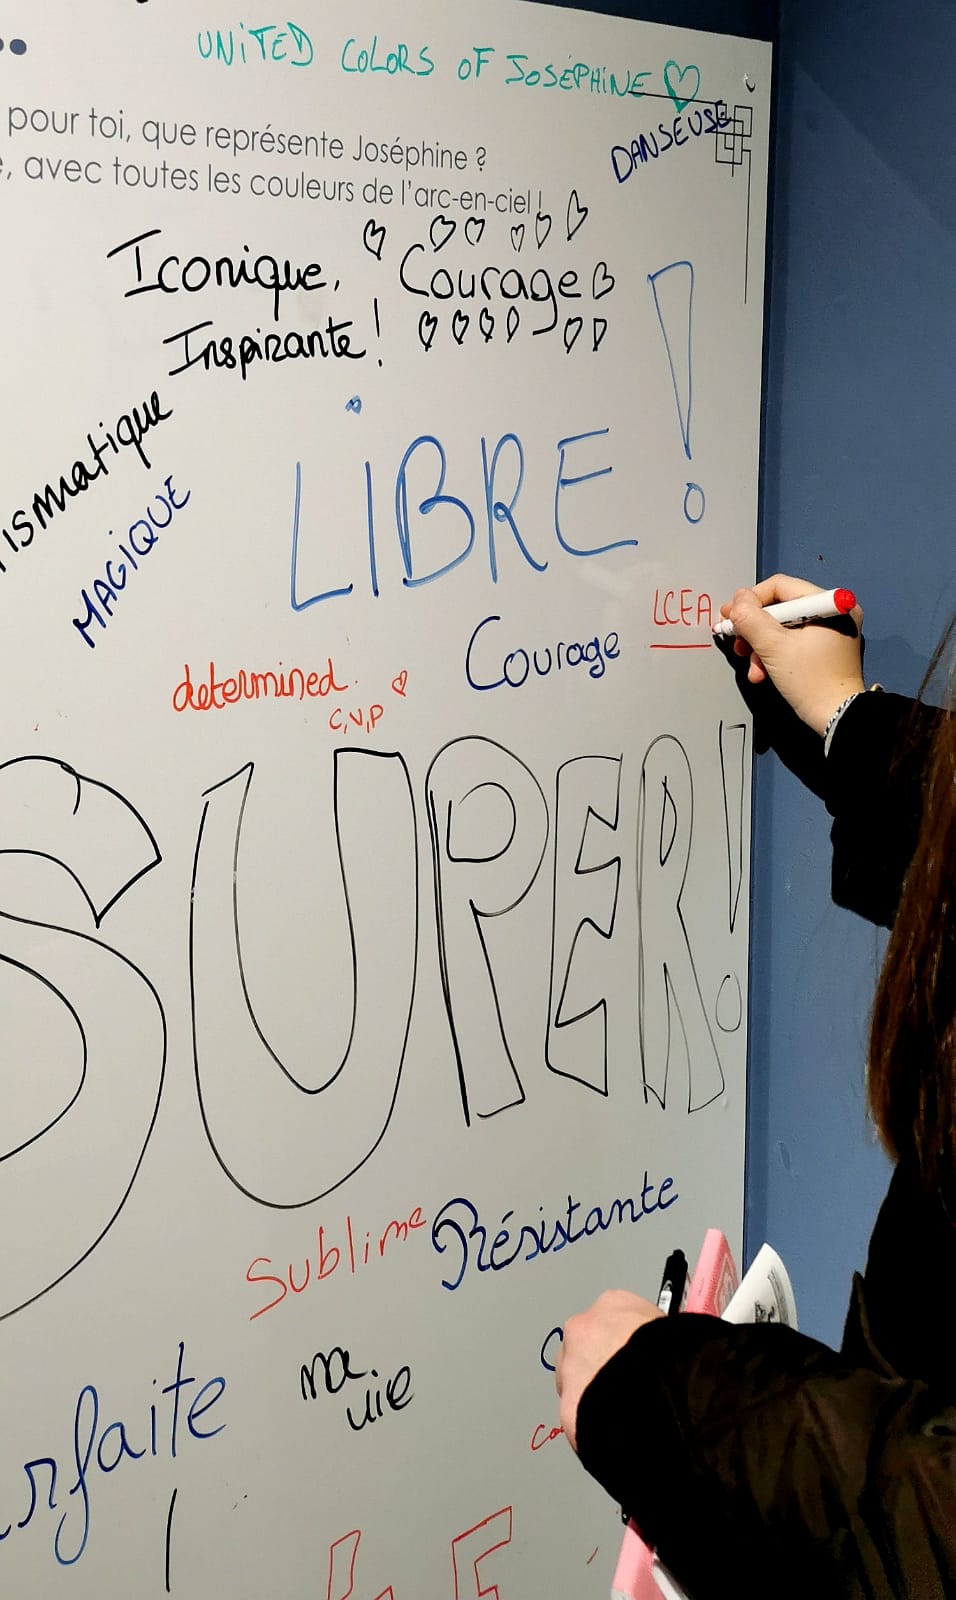 UNITED COLORS OF JOSÉPHINE
pour toi, que représente Joséphine ?
avec toutes les couleurs de l'arc-en-ciel !
DANSEUSE
Iconique, Courage
Inspirante !
ismatique
MAGIQUE
LIBRE !
determined.
C,V,P
Courage
LCEA
SUPER!
Sublime
Résistante
rfaite
ma
vie